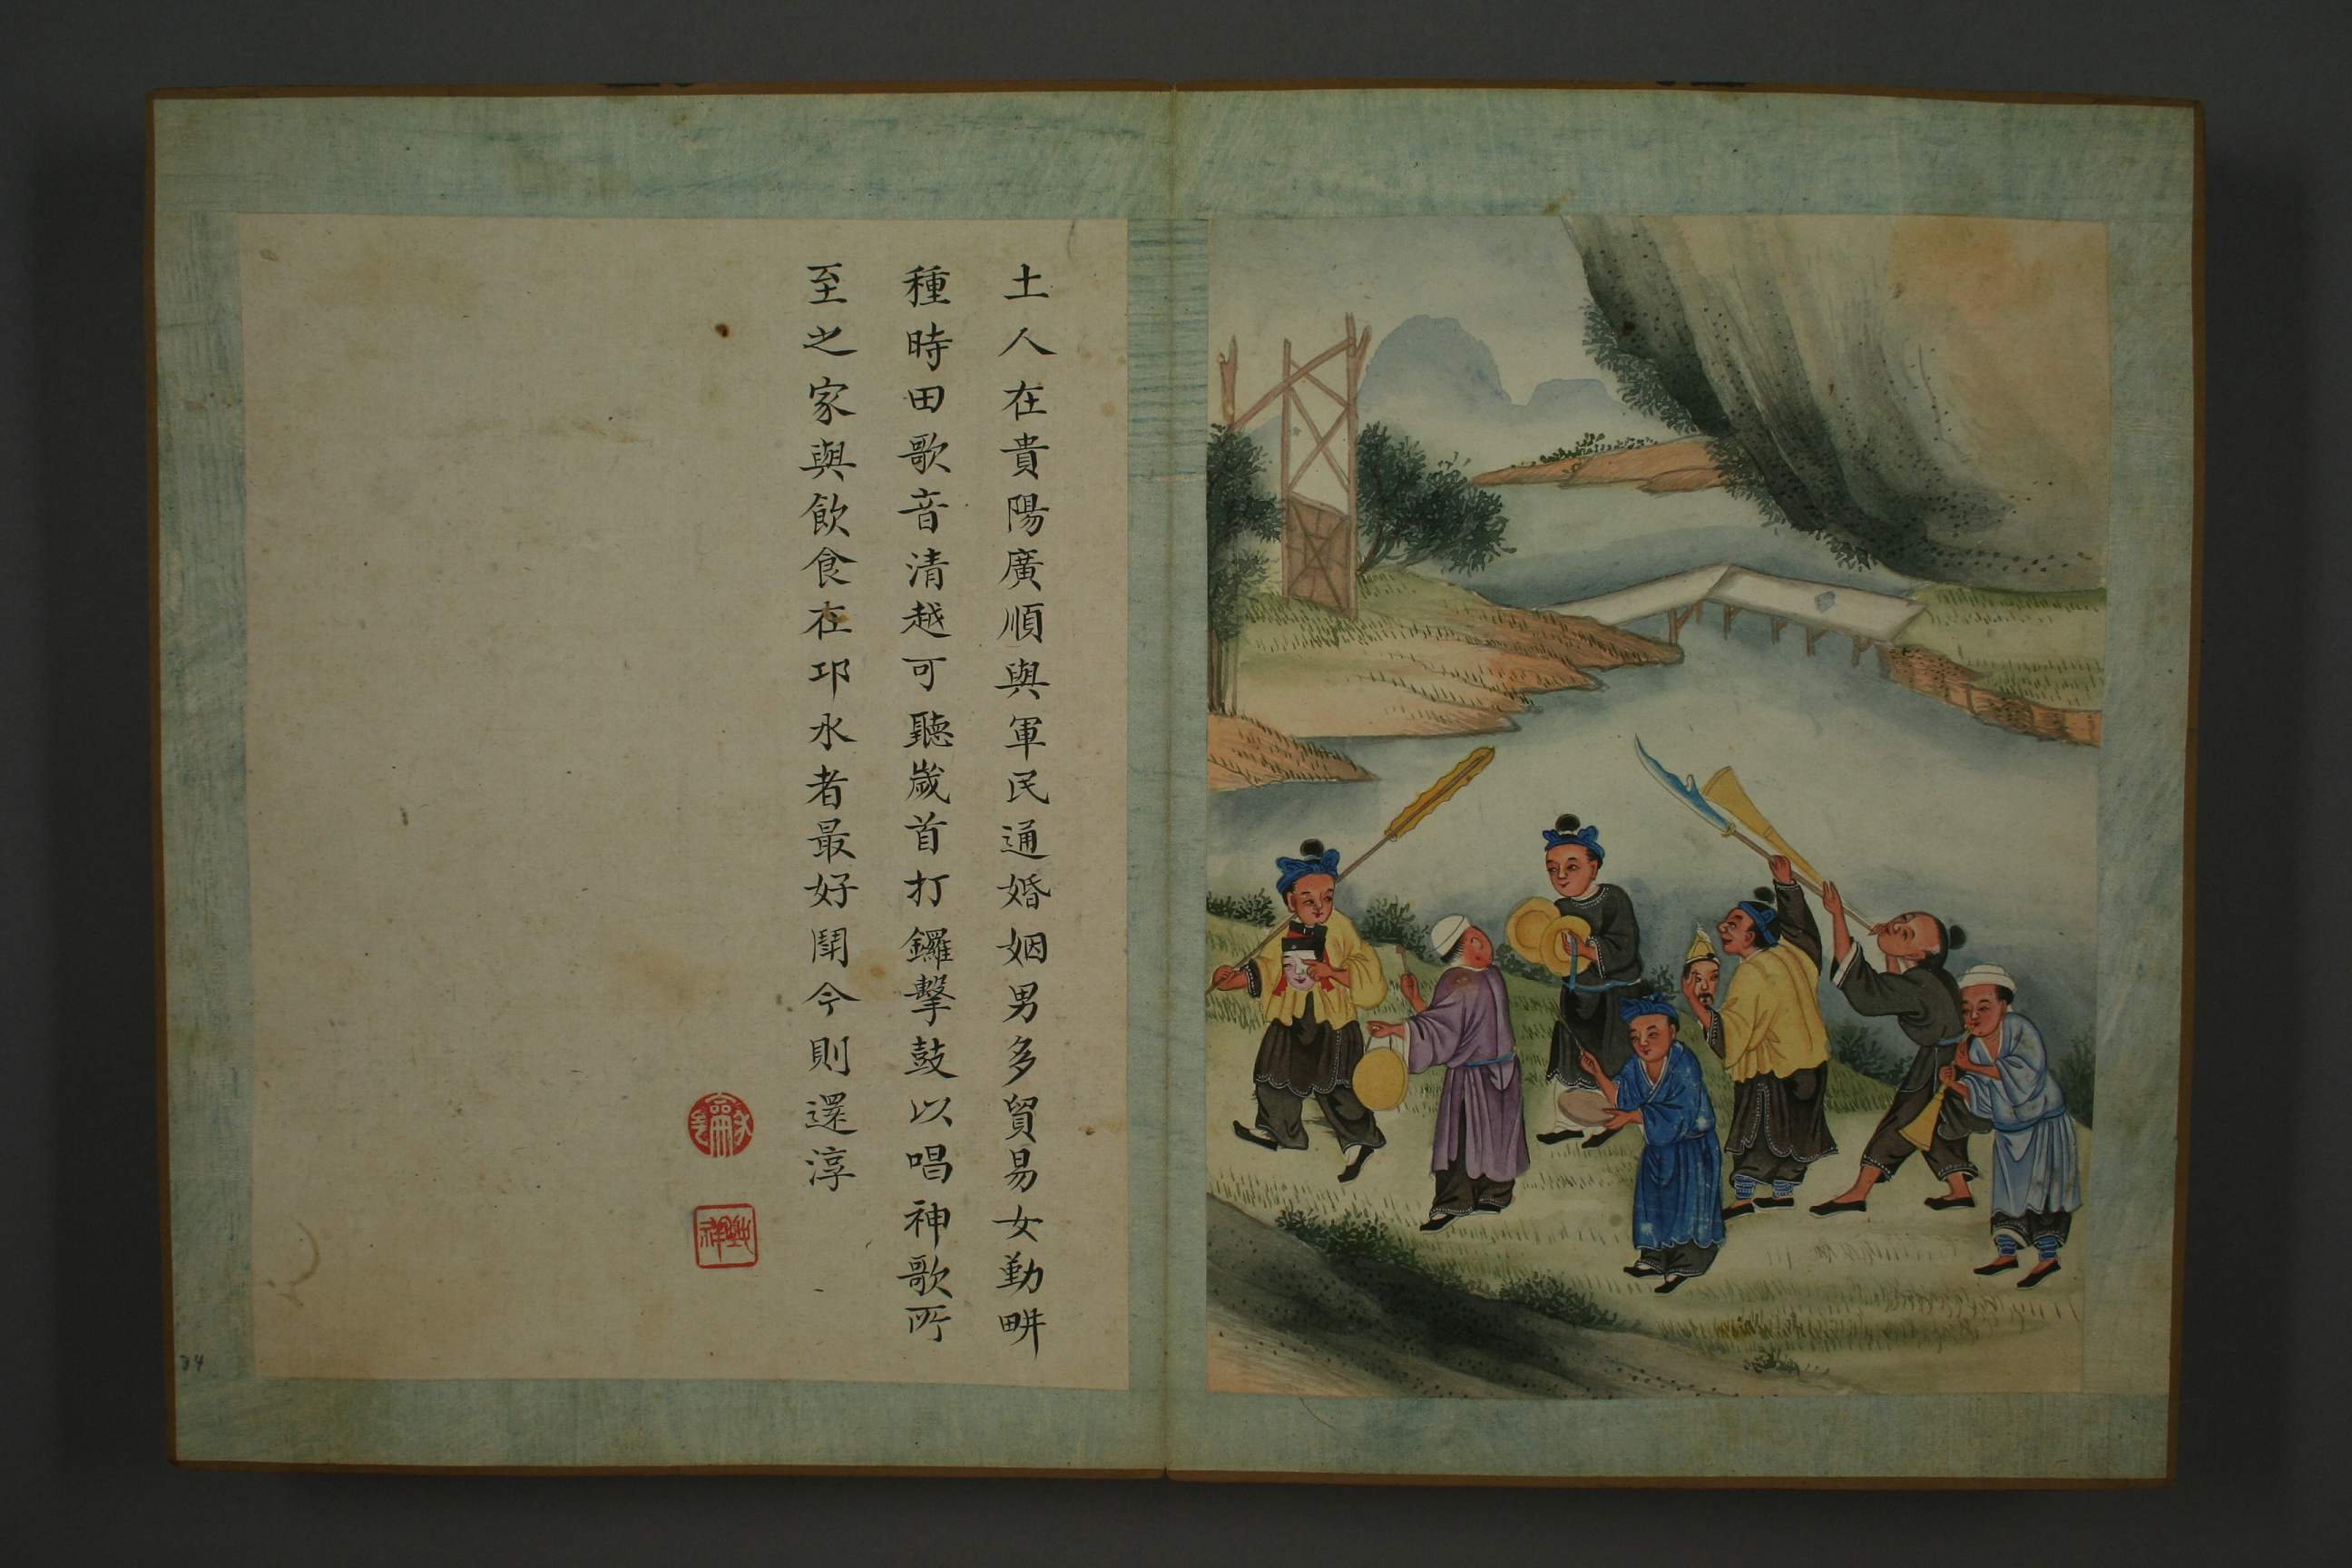 土人在貴陽廣順與軍民通婚姻男多貿易女勤畊
種時田歌音清越可聽歲首打鑼擊鼓以唱神歌所
至之家與飲食在邛水者最好鬥今則還淳
24